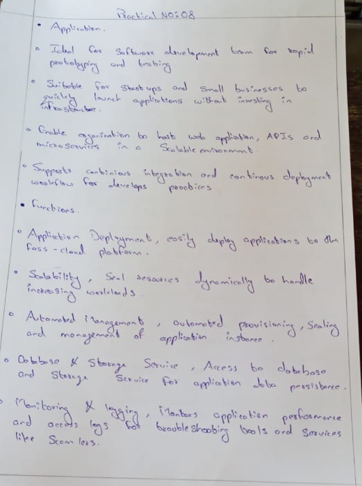 Practical NO:08
• Application.
• Ideal for software development team for rapid
prototyping and testing
• Suitable for startups and small businesses to
quickly launch applications without investing in
infrastructure.
• Enable organization to host web application, APIs and
microservices in a Scalable environment
• Supports continious integration and continous deployment
workflow for develops practices.
• Functions.
• Application Deployment, easily deploy applications to the
Pass-cloud platform.
• Scalability, Scal resources dynamically to handle
increasing workloads
• Automated Management, automated provisioning, Scaling
and management of application instance.
• Database & Storage Service, Access to database
and Storage Service for application data persistence.
• Monitoring & logging, Monitors application performance
and access logs for troubleshooting tools and services
like